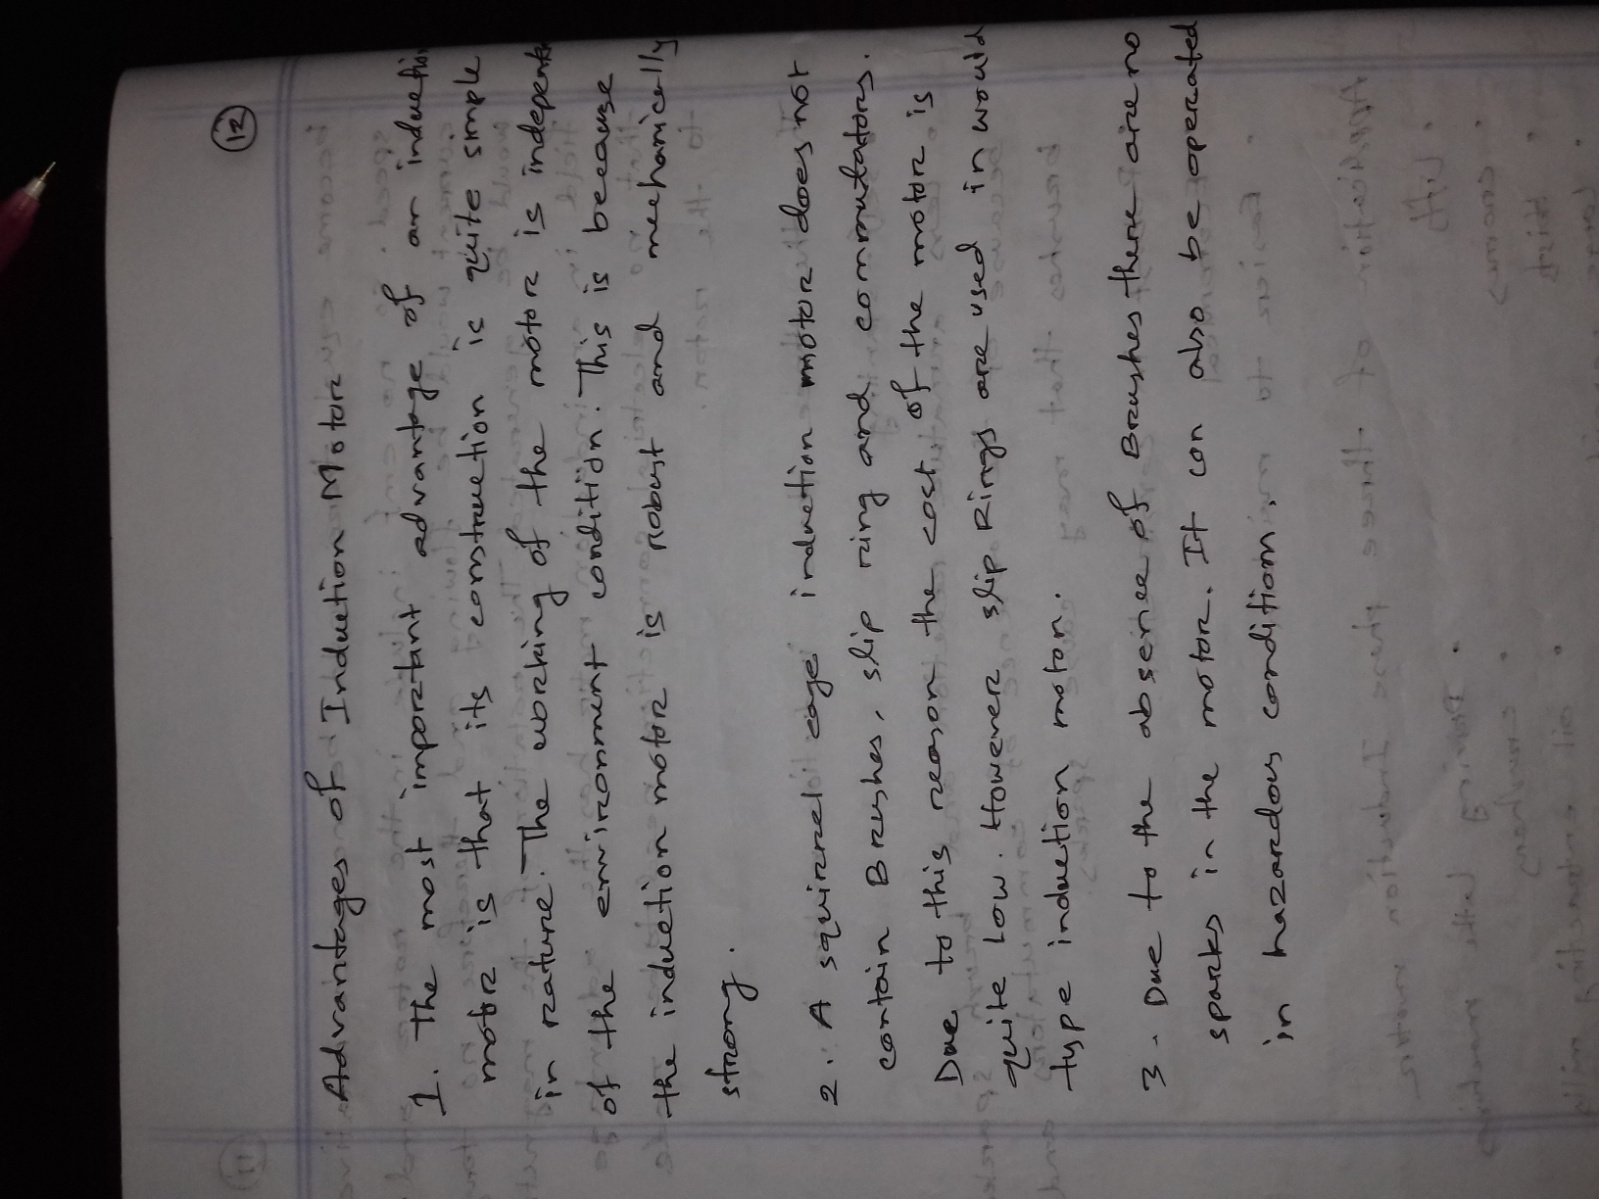 12
Advantages of Induction Motor
1. The most important advantage of an inductio
motor is that its construction is quite simple
in nature. The working of the motor is independ
of the environment condition. This is because
the induction motor is robust and mechanically
strong.
2. A squirrel cage induction motor does not
contain Brushes, slip ring and commutators.
Due to this reason the cost of the motor is
quite Low. However slip Rings are used in would
type induction motor.
3. Due to the absence of Brushes there are no
sparks in the motor. It can also be operated
in hazardous condition.